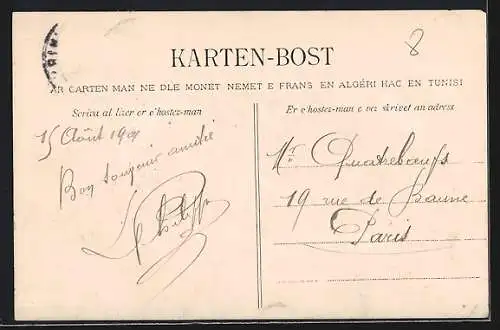 KARTEN-BOST
8
AR CARTEN MAN NE DLE MONET NEMET E FRANS EN ALGÉRI HAC EN TUNISI
Scriva al lizer er c'hostez-man
Er c'hostez-man e vez skrivet an adress
15 Août 190
Bon toujour amitié
Philipp
Mr Quatreboeufs
19 rue de Beaune
Paris